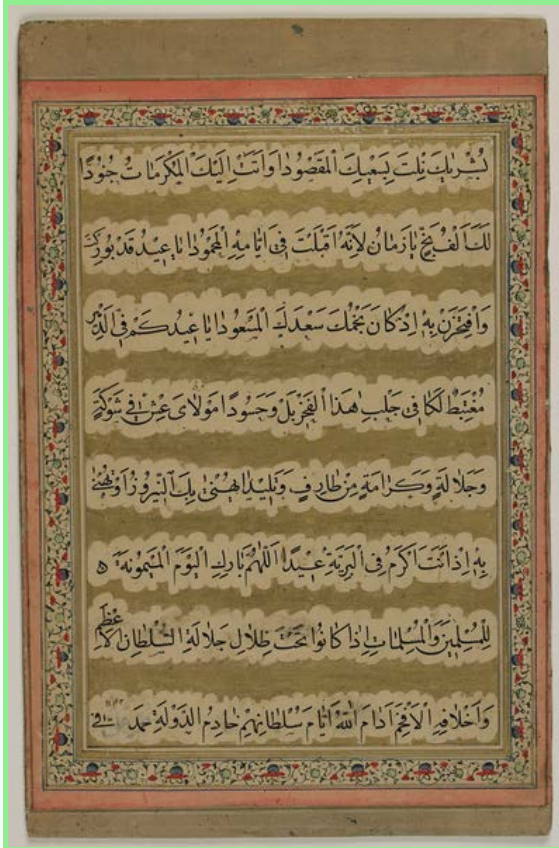 بُشْرَيٰكَ نِلْتَ بِسَعْيِكَ الْمَقْصُودَا وَاَتَتْ اِلَيْكَ الْمَكْرَمَاتُ جُنُودًا
لَكَ اَلْفُ بَخٍ يَا زَمَانُ لِاَنَّهُ اَقْبَلَتْ فِى اَيَّامِهِ الْمَحْمُودَا يَا عِيدُ قَدْ بُورِكْتَ
وَافْخَرَنْ بِهِ اِذْ كَانَ نَجْمُكَ سَعْدَكَ الْمَسْعُودَا يَا عِيدُ كَمْ فِى الدَّهْرِ
مُغْتَبِطٌ لَكَا فِى جَلْبِ هٰذَا الْفَخْرِ بَلْ وَحَسُودًا مَوْلَاىَ عِشْ فِى شَوْكَةٍ
وَجَلَالَةٍ وَكَرَامَةٍ مِنْ طَارِفٍ وَتَلِيدًا يَهْنِى بِكَ النَّيْرُوزُ اَوْ تَهْنٰى
بِهِ اِذْ اَنْتَ اَكْرَمُ فِى الْبَرِيَّةِ عِيدًا اَللّٰهُمَّ بَارِكِ الْيَوْمَ الْمَيْمُونَةَ
لِلْمُسْلِمِينَ وَالْمُسْلِمَاتِ اِذَا كَانُوا تَحْتَ ظِلَالِ جَلَالَةِ السُّلْطَانِ الْاَعْظَمِ
وَاَخْلَافِهِ الْاَفْخَمِ اَدَامَ اللّٰهُ اَيَّامَ سُلْطَانِهِمْ خَادِمُ الدَّوْلَةِ